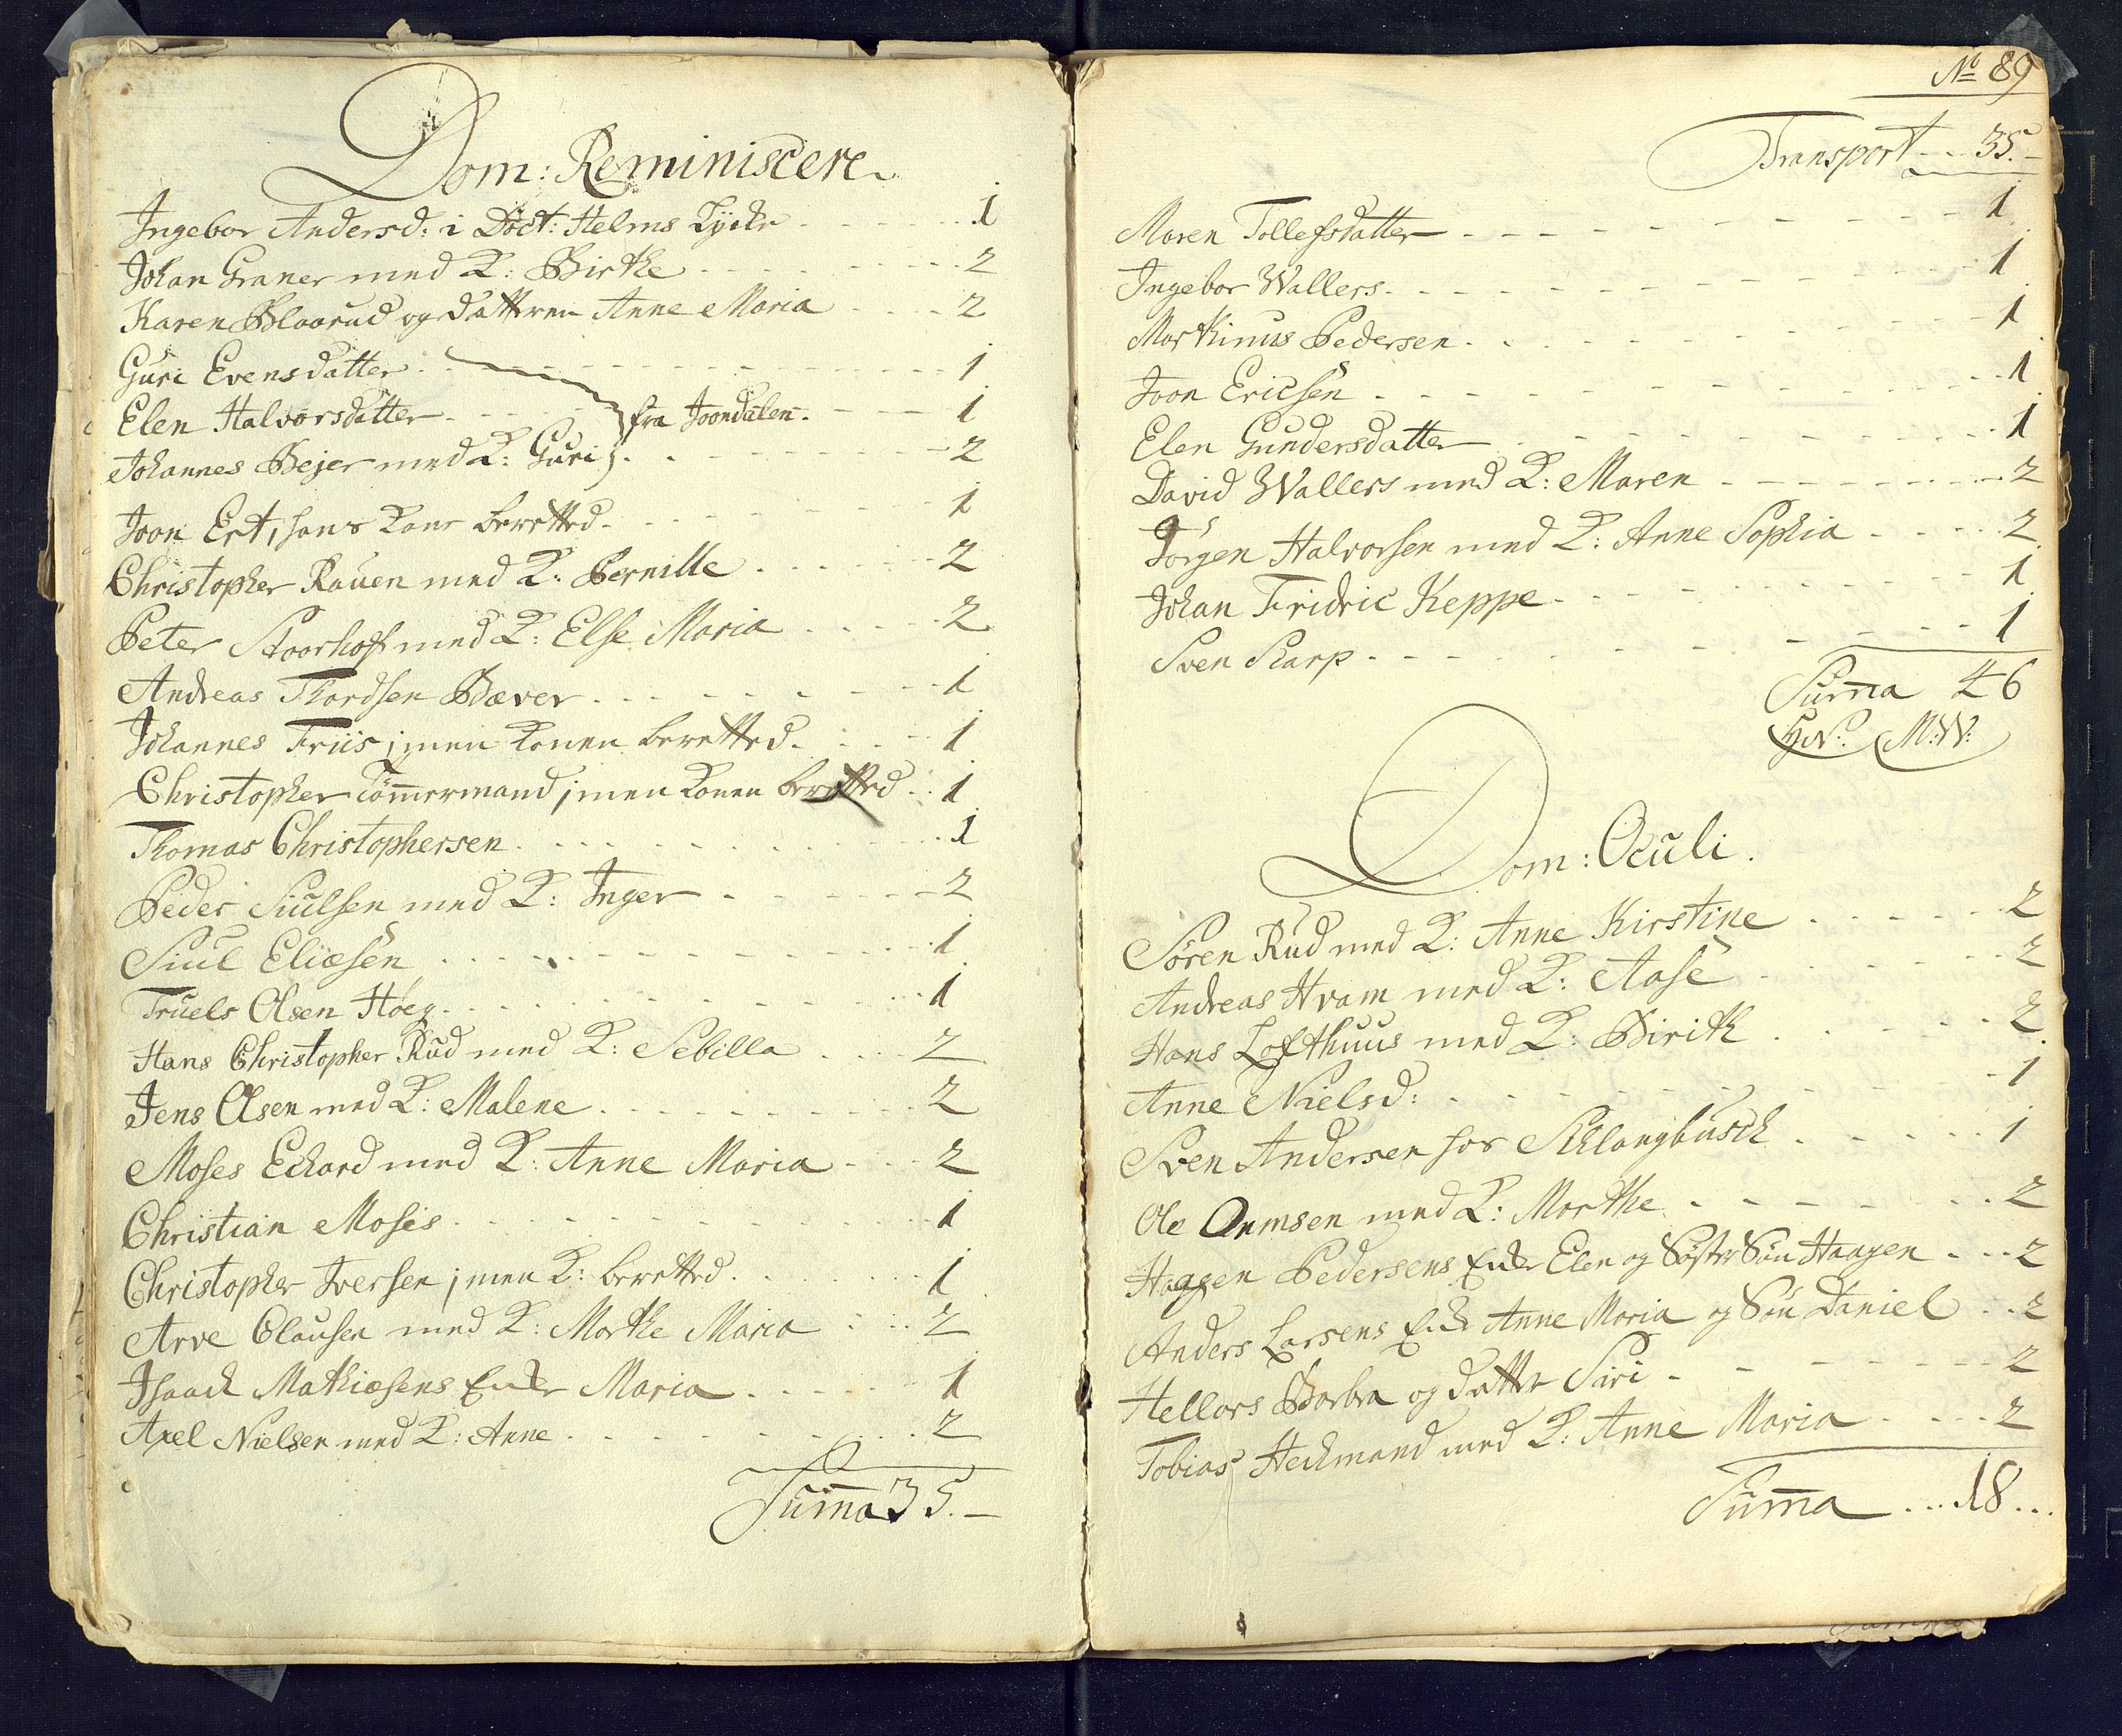 Dom: Reminiscere
Ingebor Andersd: i Doct: Helms Lycke 1
Johan Graner med K: Birthe 2
Karen Blaarud og datteren Anne Maria 2
Guri Evensdatter 1
Elen Halvorsdatter fra Joondalen 1
Johannes Bejer med K: Guri 2
Joon Ert, hans Kone beretted 1
Christopher Rauen med K: Pernille 2
Peter Stoorhoff med K: Else Maria 2
Andreas Thordsen Bæver 1
Johannes Friis; men Konen beretted 1
Christopher Tömmermand; men Konen beretted 1
Thomas Christophersen 1
Peder Siulsen med K: Inger 2
Siul Eliæsen 1
Truels Olsen Høeg 1
Hans Christopher Rud med K: Sebilla 2
Jens Olsen med K: Malene 2
Moses Echard med K: Anne Maria 2
Christian Moses 1
Christopher Iversen; men K: beretted 1
Arve Olausen med K: Marthe Maria 2
Isaach Mathiæsens Encke Maria 1
Axel Nielsen med K: Anne 2
Suma 35.
No 89
Transport 35.
Maren Tollefsdatter 1
Ingebor Wallers 1
Marthinus Pedersen 1
Joon Ericsen 1
Elen Gundersdatter 1
David Wallers med K: Maren 2
Jörgen Halvorsen med K: Anne Sophia 2
Johan Fridric Keppe 1
Sven Skarp 1
Suma 46
M:W:
Dom: Oculi.
Sören Rud med K: Anne Kirstine 2
Andreas Hvam med K: Aase 2
Hans Lofthuus med K: Birith 2
Anne Nielsd: 1
Sven Andersen hos Schlangbusch 1
Ole Ormsen med K: Marthe 2
Hagen Pedersens Encke Elen og Søster Sön Haagen 2
Anders Larsens Encke Anne Maria og Sön Daniel 2
Hellars Barbra og datter Siri 2
Tobias Heckmand med K: Anne Maria 2
Suma 18